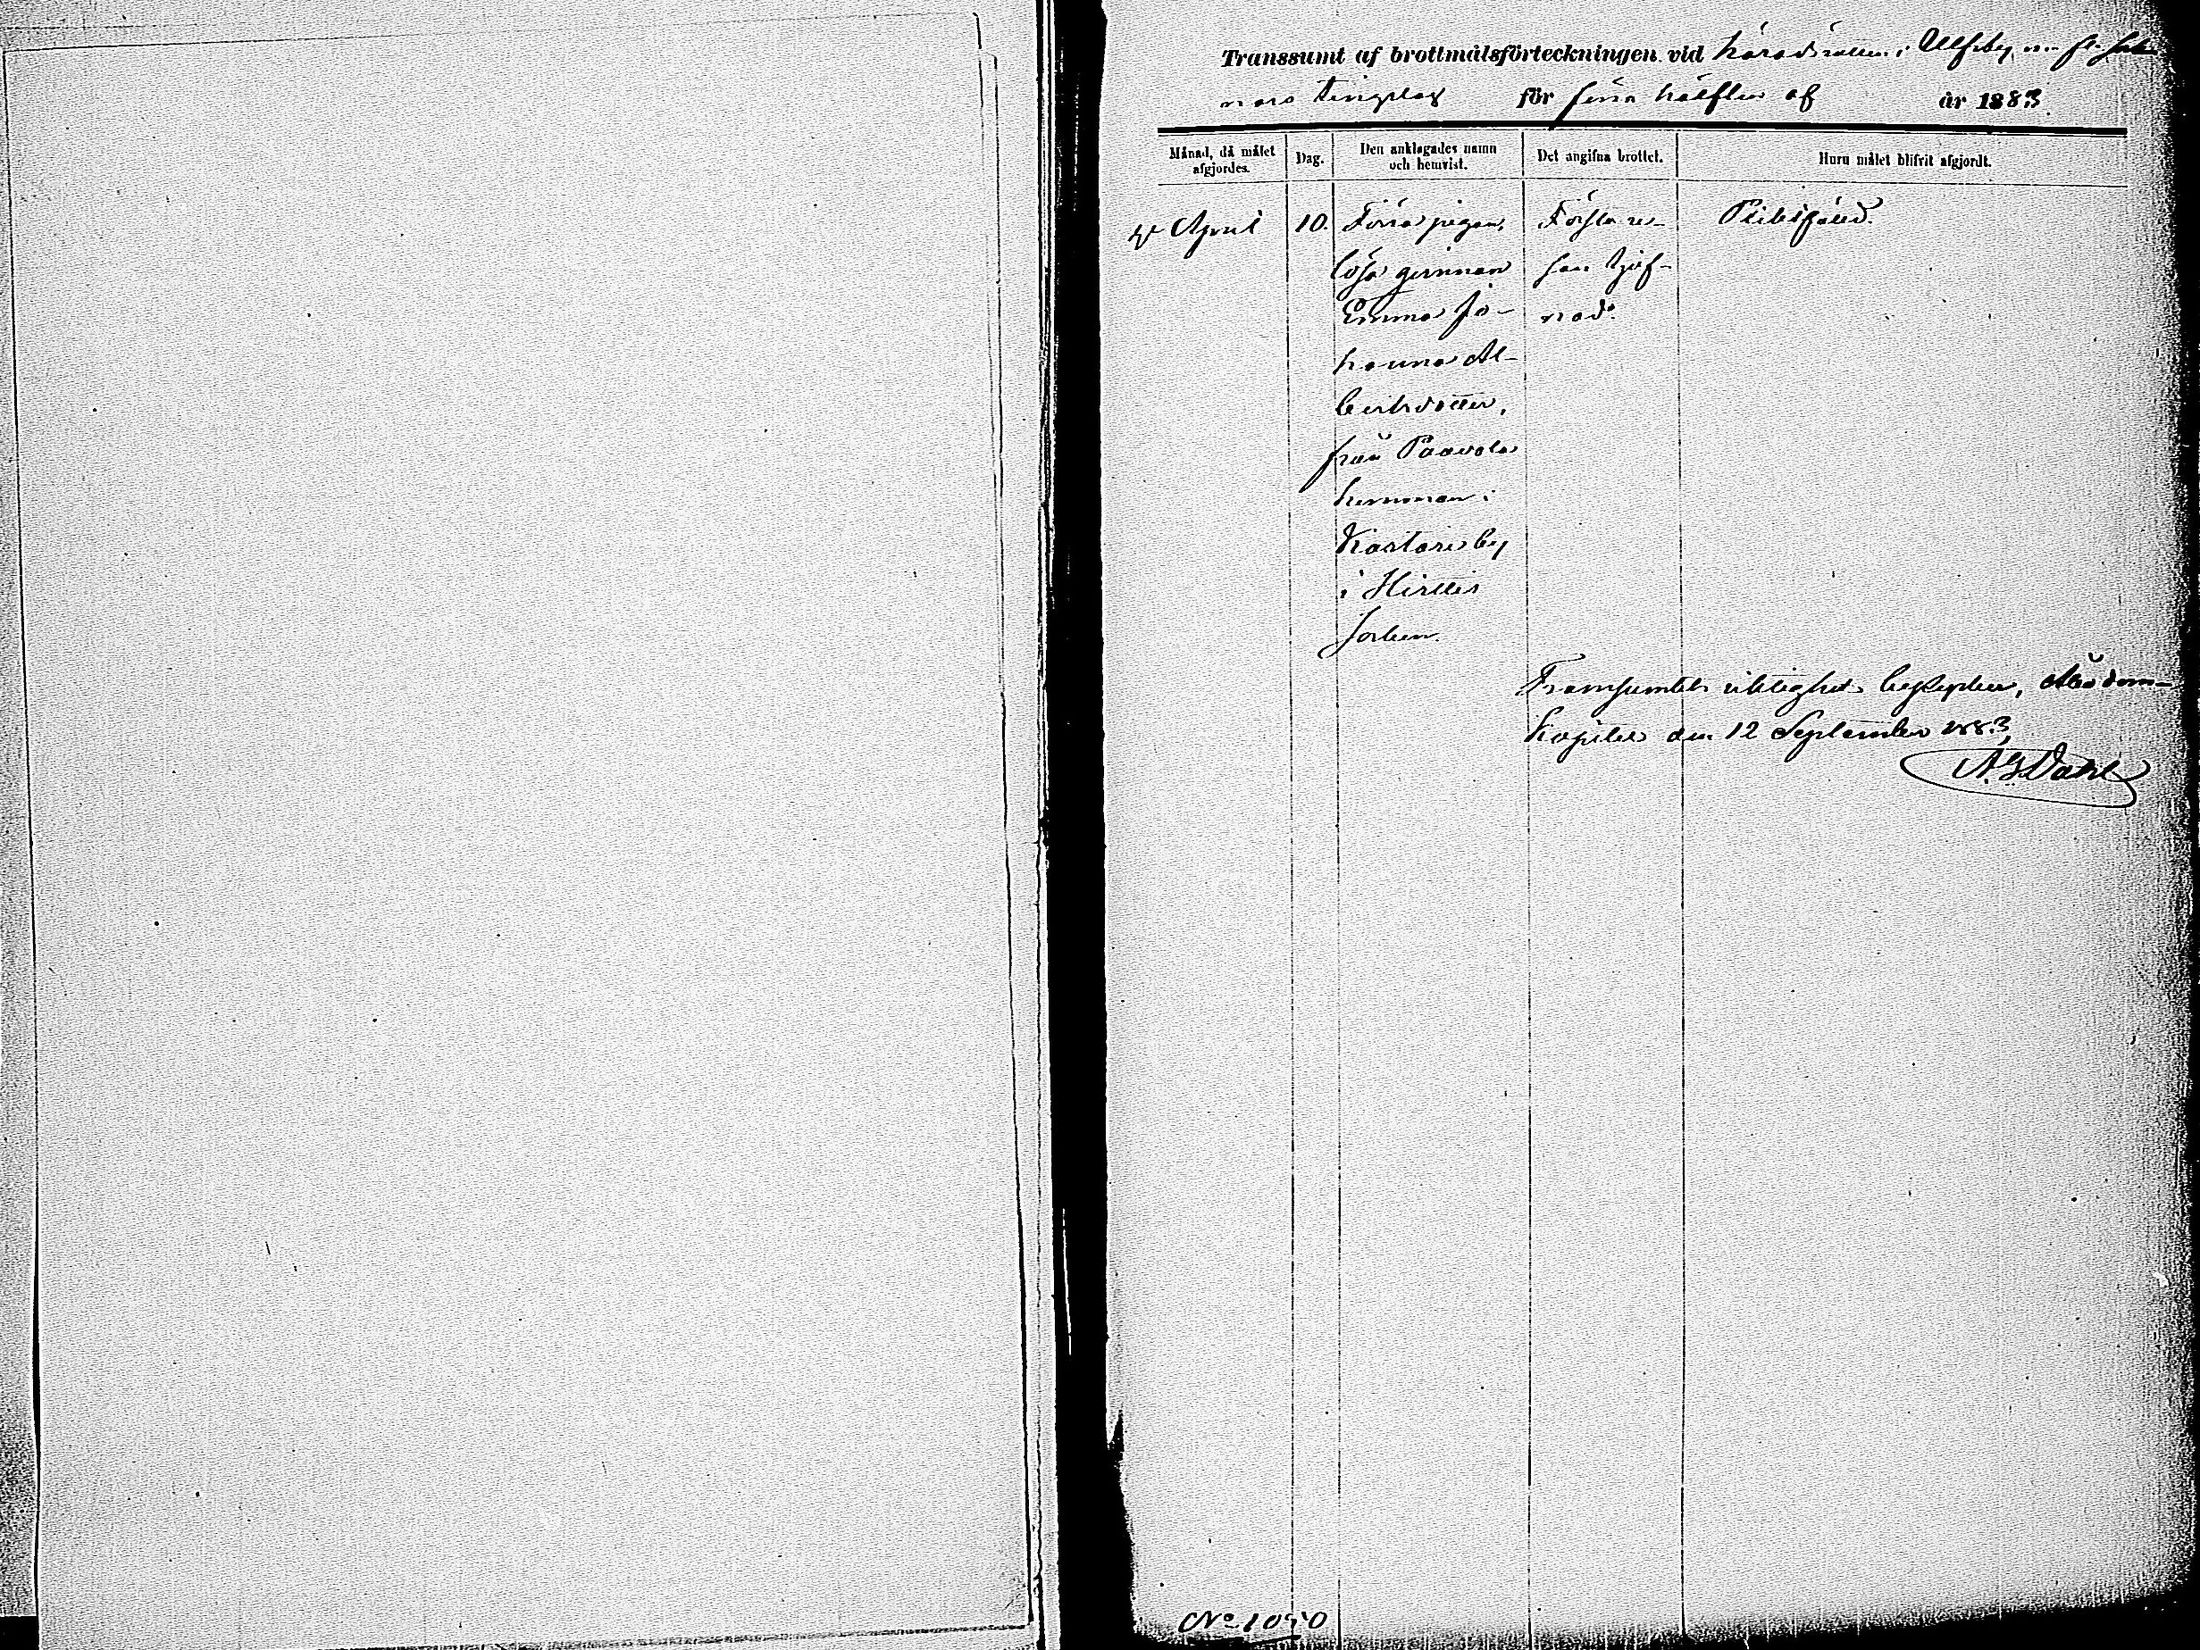 Transsumt af brottmålsförteckningen vid häradsrätten i Ulfsby m. fl. sock-
nars tingslag för förra hälften af år 1883
Månad, då målet afgjordes.
Dag.
Den anklagades namn och hemvist.
Det angifna brottet.
Huru målet blifvit afgjordt.
April
10.
Förra pigan,
lösa qvinnan
Emma Jo-
hanna Al-
bertsdotter,
från Paavola
hemman i
Kastari by
i
socken.
Första re-
san tjuf-
nad.
Transsumtets riktighet
den 12 September 1883,
Dahl
No 1090